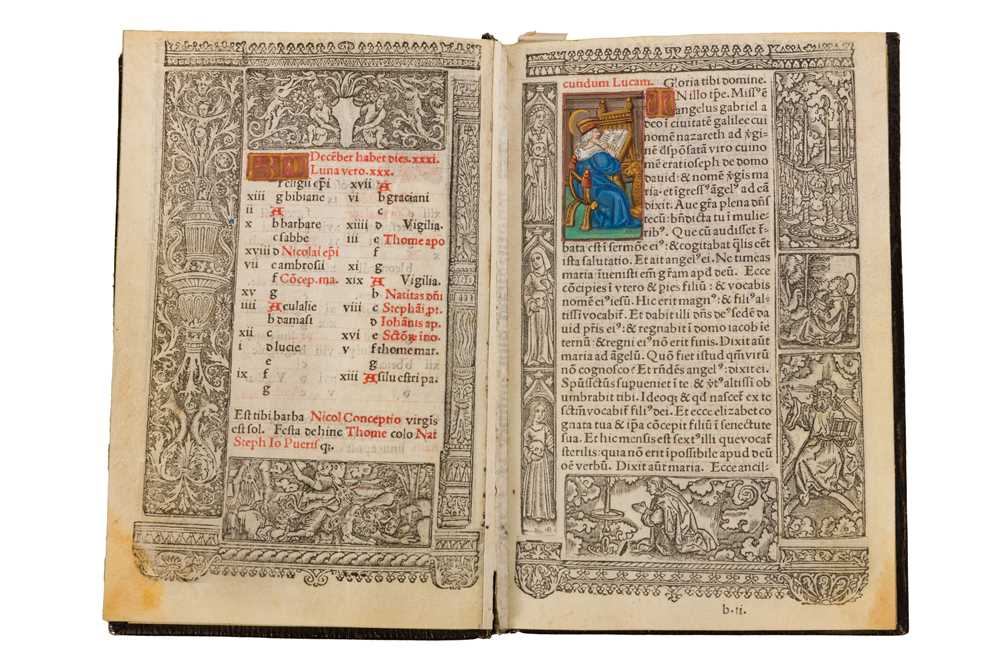 Decēber habet dies. xxxi.
Luna vero. xxx.
f eligii ep̄i xvii A
xiii g bibiane vi b graciani
ii A c
x b barbare xiiii d Vigilia.
c sabbe iii e Thome apo
xviii d Nicolai ep̄i f
vii e ambrosii xi g
f Cōcep. ma. xix A Vigilia.
xv g b Natitas dn̄i
iiii A eulalie viii c Stephāi, pt.
b damasi d Iohānis ap.
xii c xvi e Sctōꝝ ino
i d lucie v f thome mar.
e g
ix f xiii A siluestri pa.
g
Est tibi barba Nicol Conceptio virgīs
est sol. Festa dehinc Thome colo Nat
Steph Io Pueris qꝫ.
cundum Lucam. Gloria tibi domine.
IN illo tp̄e. Miss⁹ē
angelus gabriel a
deo ī ciuitatē galilee cui
nomē nazareth ad v̄gi-
nē dn̄spōsatā viro cui no
mē erat ioseph de domo
dauid: & nomē v̄gis ma
ria. et īgress⁹ āgel⁹ ad eā
dixit. Aue gr̄a plena dn̄s
tecū: bn̄dicta tu ī mulie-
rib⁹. Que cū audisset tr̄-
bata est ī sermōe ei⁹: & cogitabat q̄lis eēt
ista salutatio. Et ait āgel⁹ ei. Ne timeas
maria īuenisti em̄ gr̄am apd deū. Ecce
cōcipies ī vtero & pies filiū: & vocabis
nomē ei⁹ iesū. Hic erit magn⁹: & fili⁹ al-
tissī vocabit̄. Et dabit illi dn̄s de⁹ sedē da
uid pr̄is ei⁹: & regnabit ī domo iacob ī e ter-
nū: & regni ei⁹ nō erit finis. Dixit aūt
maria ad āgelū. Quō fiet istud qm̄ virū
nō cognosco? Et rn̄dēs angel⁹: dixit ei.
Spūsctūs supueniet ī te, & v̄t⁹ altissī ob
umbrabit tibi. Ideoqꝫ & qd nascet̄ ex te
sctm̄ vocabit̄ fili⁹ dei. Et ecce elizabet co
gnata tua & ip̄a cōcepit filiū ī senectute
sua. Et hic mensis est sext⁹ illi que vocat̄
sterilis: quia nō erit īpossibile apud deū
oē verbū. Dixit aūt maria. Ecce ancil-
b. ii.